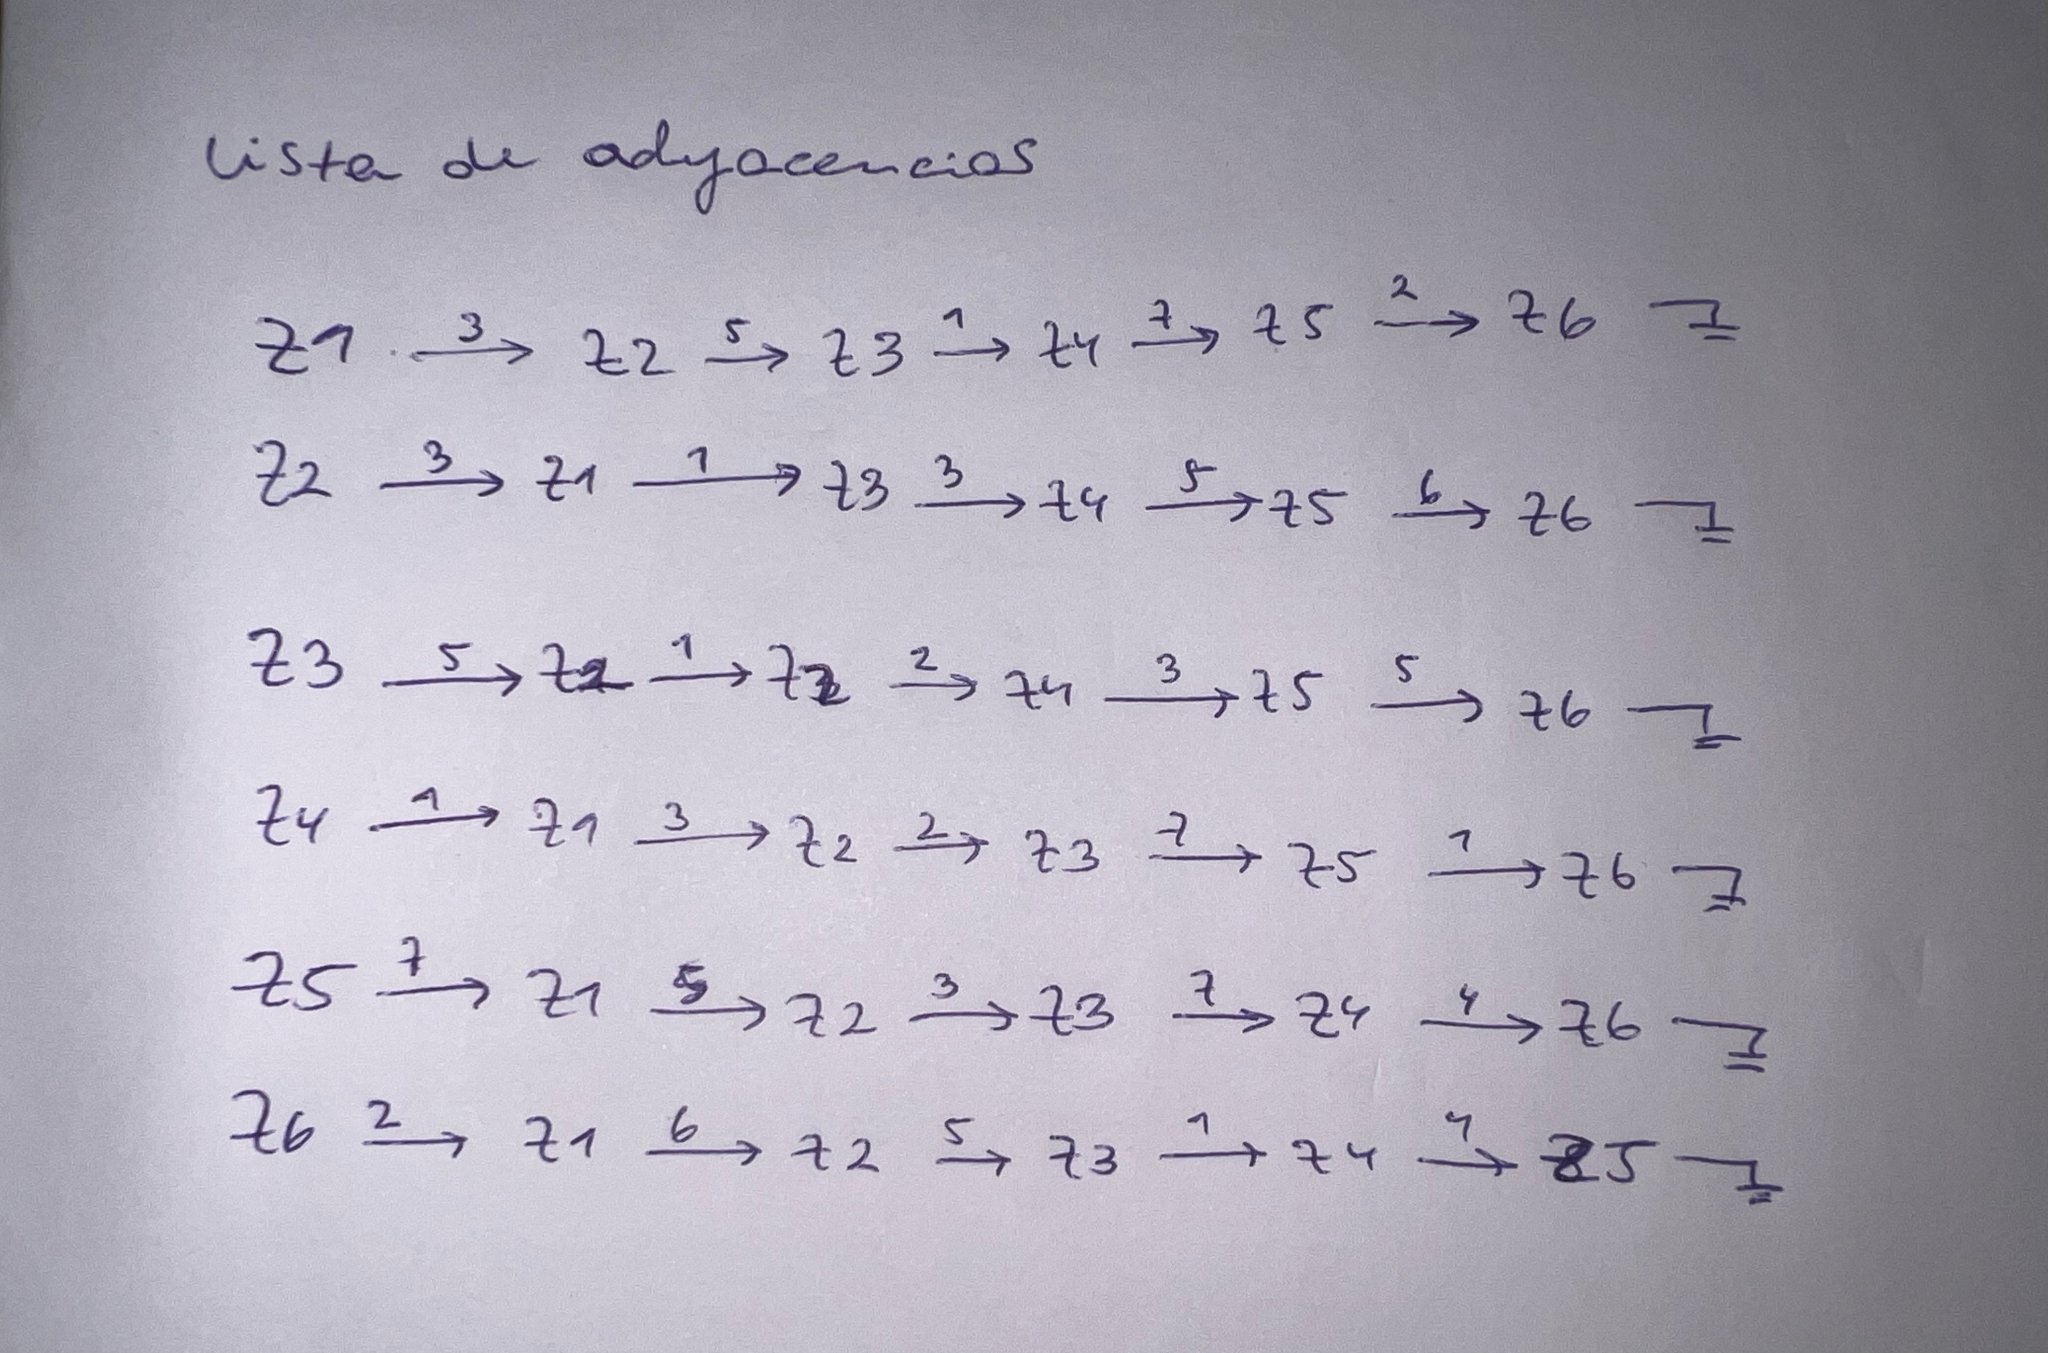 lista de adyacencias
Z1 3→ Z2 5→ Z3 1→ Z4 7→ Z5 2→ Z6
Z2 3→ Z1 1→ Z3 3→ Z4 5→ Z5 6→ Z6
Z3 5→ Z1 1→ Z2 2→ Z4 3→ Z5 5→ Z6
Z4 1→ Z1 3→ Z2 2→ Z3 7→ Z5 1→ Z6
Z5 7→ Z1 5→ Z2 3→ Z3 7→ Z4 4→ Z6
Z6 2→ Z1 6→ Z2 5→ Z3 1→ Z4 4→ Z5